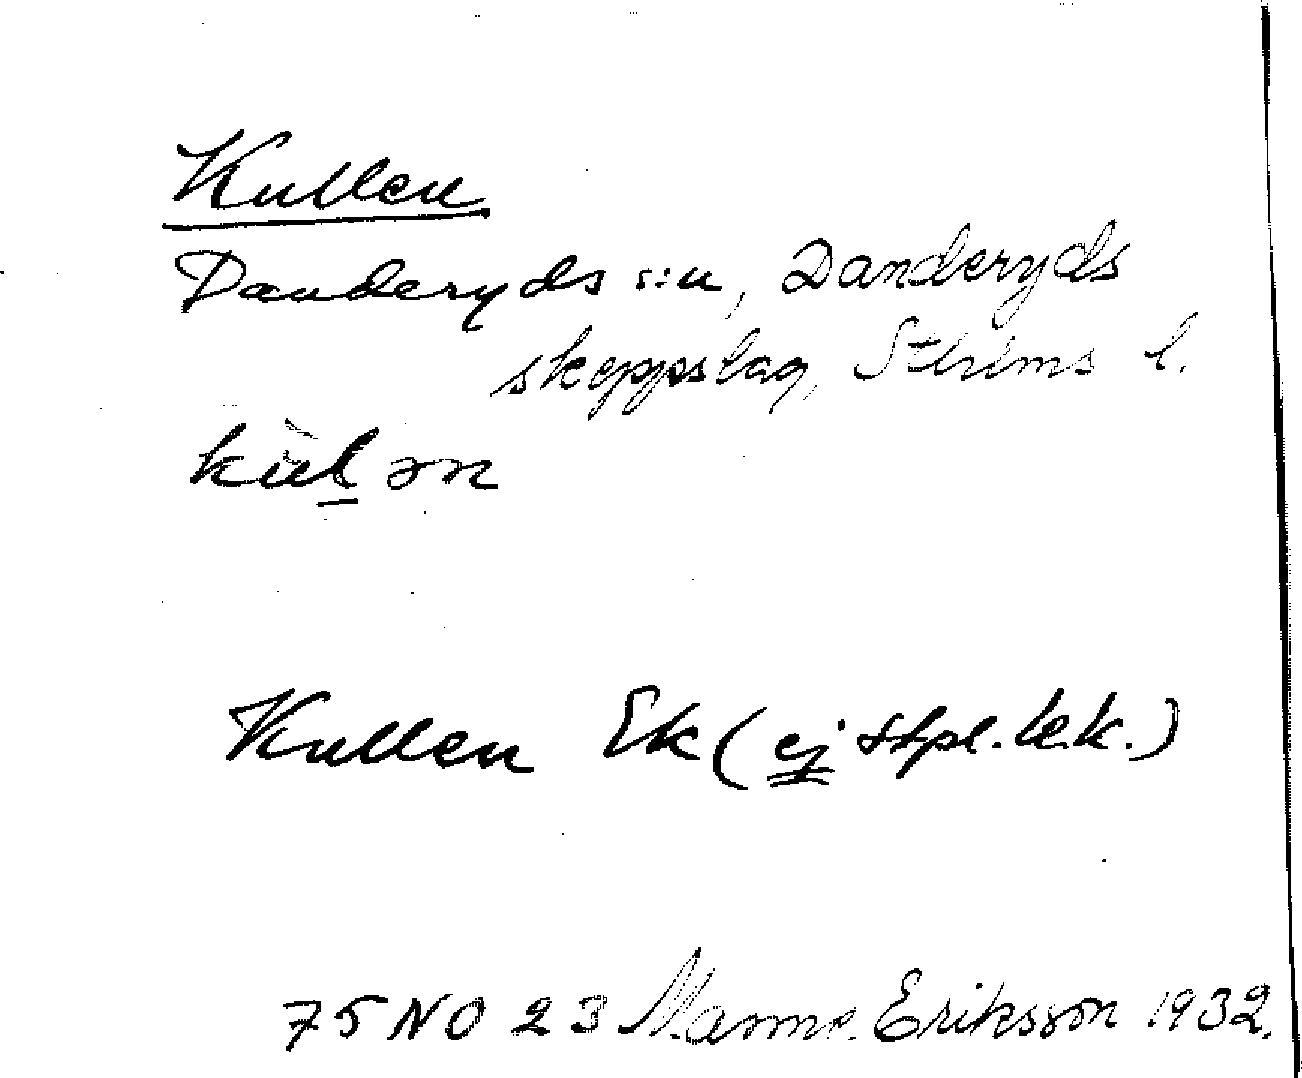 Kullen
Danderyds s:n, Danderyds
skeppslag, Sthlms l.
Kullen Ek (ej stpl. l.k.)
75 NO 23 Manne Eriksson 1932.